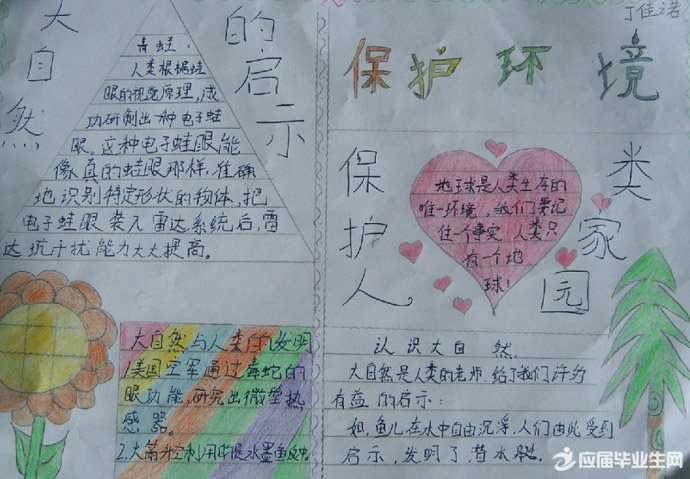 大自然
的启示
青蛙:
人类根据蛙
眼的视觉原理,成
功研制出一种电子蛙
眼。这种电子蛙眼能
像真的蛙眼那样,准确
地识别特定形状的物体,把
电子蛙眼装入雷达系统后,雷
达抗干扰能力大大提高。
大自然与人类的发明
1美国空军通过毒蛇的
眼功能,研究出微型热
感器。
丁佳诺
保护环境
保护人
类家园
地球是人类生存的
唯一环境,我们要记
住一个事实:人类只
有一个地
球!
认识大自然
大自然是人类的老师,给了我们许多
有益的启示:
如,鱼儿在水中自由沉浮,人们由此受到
启示,发明了潜水艇。
应届毕业生网